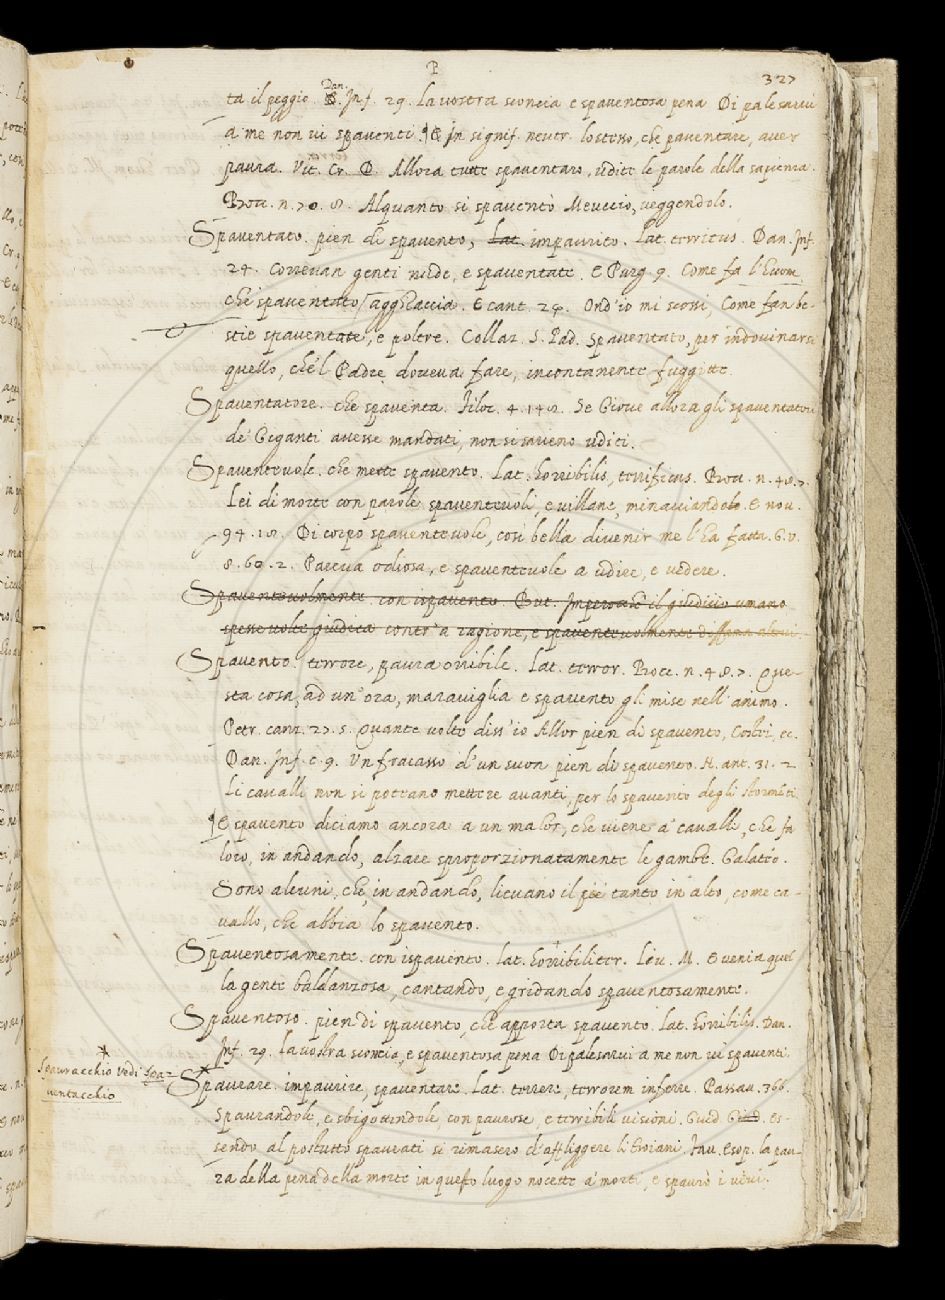 P
327
ta il peggio. Dan. Inf. 29. La vostra sconcia e spaventosa pena Di palesarvi
a me non vi spaventi. ¶ E in signif. neutr. lo stesso, che paventare, aver
paura. Vit. Cr. D. Allora tutte spaventaro, udite le parole della sapienza.
Bocc. n. 70. 8. Alquanto si spaventò Meuccio, veggendolo.
Spaventato. pien di spavento, Lat. impaurito. Lat. territus. Dan. Inf.
24. Correvan genti nude, e spaventate. E Purg. 9. Come fa l'huom
che spaventato agghiaccia. E cant. 24. Ond'io mi scossi, Come fan be-
stie spaventate, e poltre. Collaz. S. Pad. Spaventato, per indovinarsi
quello, che'l Padre doveva fare, incontanente fuggitte.
Spaventatore. che spaventa. Filoc. 4. 142. Se Giove allora gli spaventatori
de' Giganti avesse mandati, non si savieno uditi.
Spaventevole. che mette spavento. Lat. horribilis, terrificus. Bocc. n. 48. 7.
Lei di morte con parole spaventevoli, e villane, minacciandolo. E nov.
94. 18. Di corpo spaventevole, così bella divenir me l'ha fatta. G. V.
8. 60. 2. Pareva odiosa, e spaventevole a udire, e vedere.
Spaventevolmente. con ispavento. But. Imperocchè il giudicio umano
spesse volte giudica contr'a ragione, e spaventevolmente diffama altrui.
Spavento. terrore, paura orribile. Lat. terror. Bocc. n. 48. 7. Que-
sta cosa, ad un'ora, maraviglia e spavento gli mise nell'animo.
Petr. canz. 27. 5. Quante volte diss'io Allor pien di spavento, Costei, ec.
Dan. Inf. c. 9. Un fracasso d'un suon pien di spavento. N. ant. 31. 2.
Li cavalli non si potrano mettere avanti, per lo spavento degli stormēti.
¶ E spavento diciamo ancora a un malor, che viene a' cavalli, che fa
loro, in andando, alzare sproporzionatamente le gambe. Galateo.
Sono alcuni, che, in andando, lievano il piè tanto in alto, come ca-
vallo, che abbia lo spavento.
Spaventosamente. con ispavento. lat. horribiliter. Liv. M. E venia quel
la gente baldanzosa, cantando, e gridando spaventosamente.
Spaventoso. pien di spavento, che apporta spavento. lat. horribilis. Dan.
Inf. 29. La vostra sconcia, e spaventosa pena Di palesarvi a me non vi spaventi.
* Spauracchio vedi spa-
ventacchio
* Spaurare. impaurire, spaventare. Lat. terrere, terrorem inferre. Passav. 366.
Spaurandole, e sbigottendole, con paurose, e terribili visioni. Guid. G. Es-
sendo al postutto spaurati si rimasero d'affliggere li Troiani. Fav. Esop. la pau-
ra della pena della morte in questo luogo nocette a' morti, e spaurò i vivi.